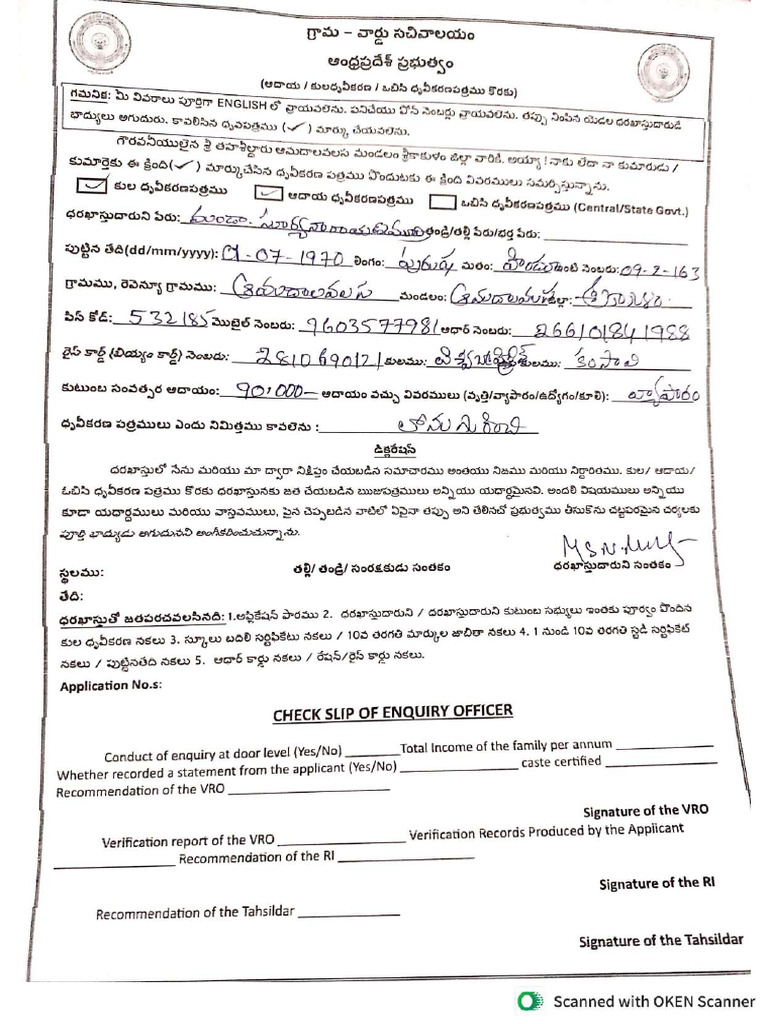 గ్రామ – వార్డు సచివాలయం
ఆంధ్రప్రదేశ్ ప్రభుత్వం
(ఆదాయ / కులధృవీకరణ / ఒబిసి ధృవీకరణపత్రము కొరకు)
గమనిక: మీ వివరాలు పూర్తిగా ENGLISH లో వ్రాయవలెను. పనిచేయు ఫోన్ నెంబర్లు వ్రాయవలెను. తప్పు నింపిన యెడల దరఖాస్తుదారుడే
బాద్యులు అగుదురు. కావలిసిన ధృవపత్రము (✓) మార్కు చేయవలెను.
గౌరవనీయులైన శ్రీ తహశీల్దారు ఆమదాలవలస మండలం శ్రీకాకుళం జిల్లా వారికి. అయ్యా ! నాకు లేదా నా కుమారుడు /
కుమార్తెకు ఈ క్రింది(✓) మార్కుచేసిన ధృవీకరణ పత్రము పొందుటకు ఈ క్రింది వివరములు సమర్పిస్తున్నాను.
✓ కుల ధృవీకరణపత్రము ✓ ఆదాయ ధృవీకరణపత్రము ఒబిసి ధృవీకరణపత్రము (Central/State Govt.)
ధరఖాస్తుదారుని పేరు: తండ్రి/తల్లి పేరు/భర్త పేరు:
పుట్టిన తేది(dd/mm/yyyy): 01-07-1970 లింగం: పురుష మతం: హిందూ ఇంటి నెంబరు: 09-2-163
గ్రామము, రెవెన్యూ గ్రామము: ఆమదాలవలస మండలం: ఆమదాలవలస జిల్లా: శ్రీకాకుళం
పిన్ కోడ్: 532185 మొబైల్ నెంబరు: 9603577981 ఆధార్ నెంబరు: 266101841988
రైస్ కార్డ్ (బియ్యం కార్డ్) నెంబరు: 2810690121 కులము: విశ్వబ్రాహ్మణ ఉపకులము: కంసాలి
కుటుంబ సంవత్సర ఆదాయం: 90,000— ఆదాయం వచ్చు వివరములు (వృత్తి/వ్యాపారం/ఉద్యోగం/కూలి): వ్యాపారం
ధృవీకరణ పత్రములు ఎందు నిమిత్తము కావలెను :
డిక్లరేషన్
దరఖాస్తులో నేను మరియు మా ద్వారా నిక్షిప్తం చేయబడిన సమాచారము అంతయు నిజము మరియు నిర్ధారితము. కుల/ ఆదాయ/
ఓబిసి ధృవీకరణ పత్రము కొరకు దరఖాస్తునకు జత చేయబడిన ఋజుపత్రములు అన్నియు యదార్థమైనవి. అందలి విషయములు అన్నియు
కూడా యదార్థములు మరియు వాస్తవములు, పైన చెప్పబడిన వాటిలో ఏదైనా తప్పు అని తేలినచో ప్రభుత్వము తీసుకొను చట్టపరమైన చర్యలకు
పూర్తి భాద్యుడు అగుదునని అంగీకరించుచున్నాను.
స్థలము: తల్లి/ తండ్రి/ సంరక్షకుడు సంతకం ధరఖాస్తుదారుని సంతకం
తేది:
ధరఖాస్తుతో జతపరచవలసినది: 1.అప్లికేషన్ ఫారము 2. దరఖాస్తుదారుని / దరఖాస్తుదారుని కుటుంబ సభ్యులు ఇంతకు పూర్వం పొందిన
కుల ధృవీకరణ నకలు 3. స్కూలు బదిలి సర్టిఫికేటు నకలు / 10వ తరగతి మార్కుల జాబితా నకలు 4. 1 నుండి 10వ తరగతి స్టడీ సర్టిఫికేట్
నకలు / పుట్టినతేది నకలు 5. ఆధార్ కార్డు నకలు / రేషన్/రైస్ కార్డు నకలు.
Application No.s:
CHECK SLIP OF ENQUIRY OFFICER
Conduct of enquiry at door level (Yes/No) Total Income of the family per annum
Whether recorded a statement from the applicant (Yes/No) caste certified
Recommendation of the VRO
Signature of the VRO
Verification report of the VRO Verification Records Produced by the Applicant
Recommendation of the RI
Signature of the RI
Recommendation of the Tahsildar
Signature of the Tahsildar
Scanned with OKEN Scanner